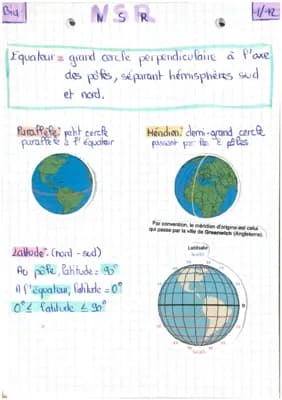 NSR
N S R
Equateur = grand cercle perpendiculaire à l'axe
des pôles, séparant hémisphères sud
et nord.
Parallèle: petit cercle
parallèle à l'équateur
Méridien: demi-grand cercle
passant par les 2 pôles
Par convention, le méridien d'origine est celui
qui passe par la ville de Greenwich (Angleterre).
Latitude: (nord - sud)
Au pôle, latitude = 90°
A l'équateur, latitude = 0°
0° ≤ latitude ≤ 90°
Latitude